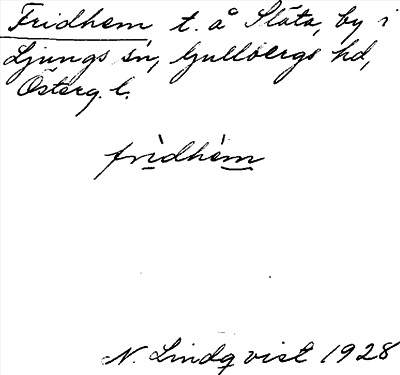 Fridhem t. å Slåta, by i
Ljungs sn, Gullbergs hd,
Österg. l.
frìdhèm
N. Lindqvist 1928